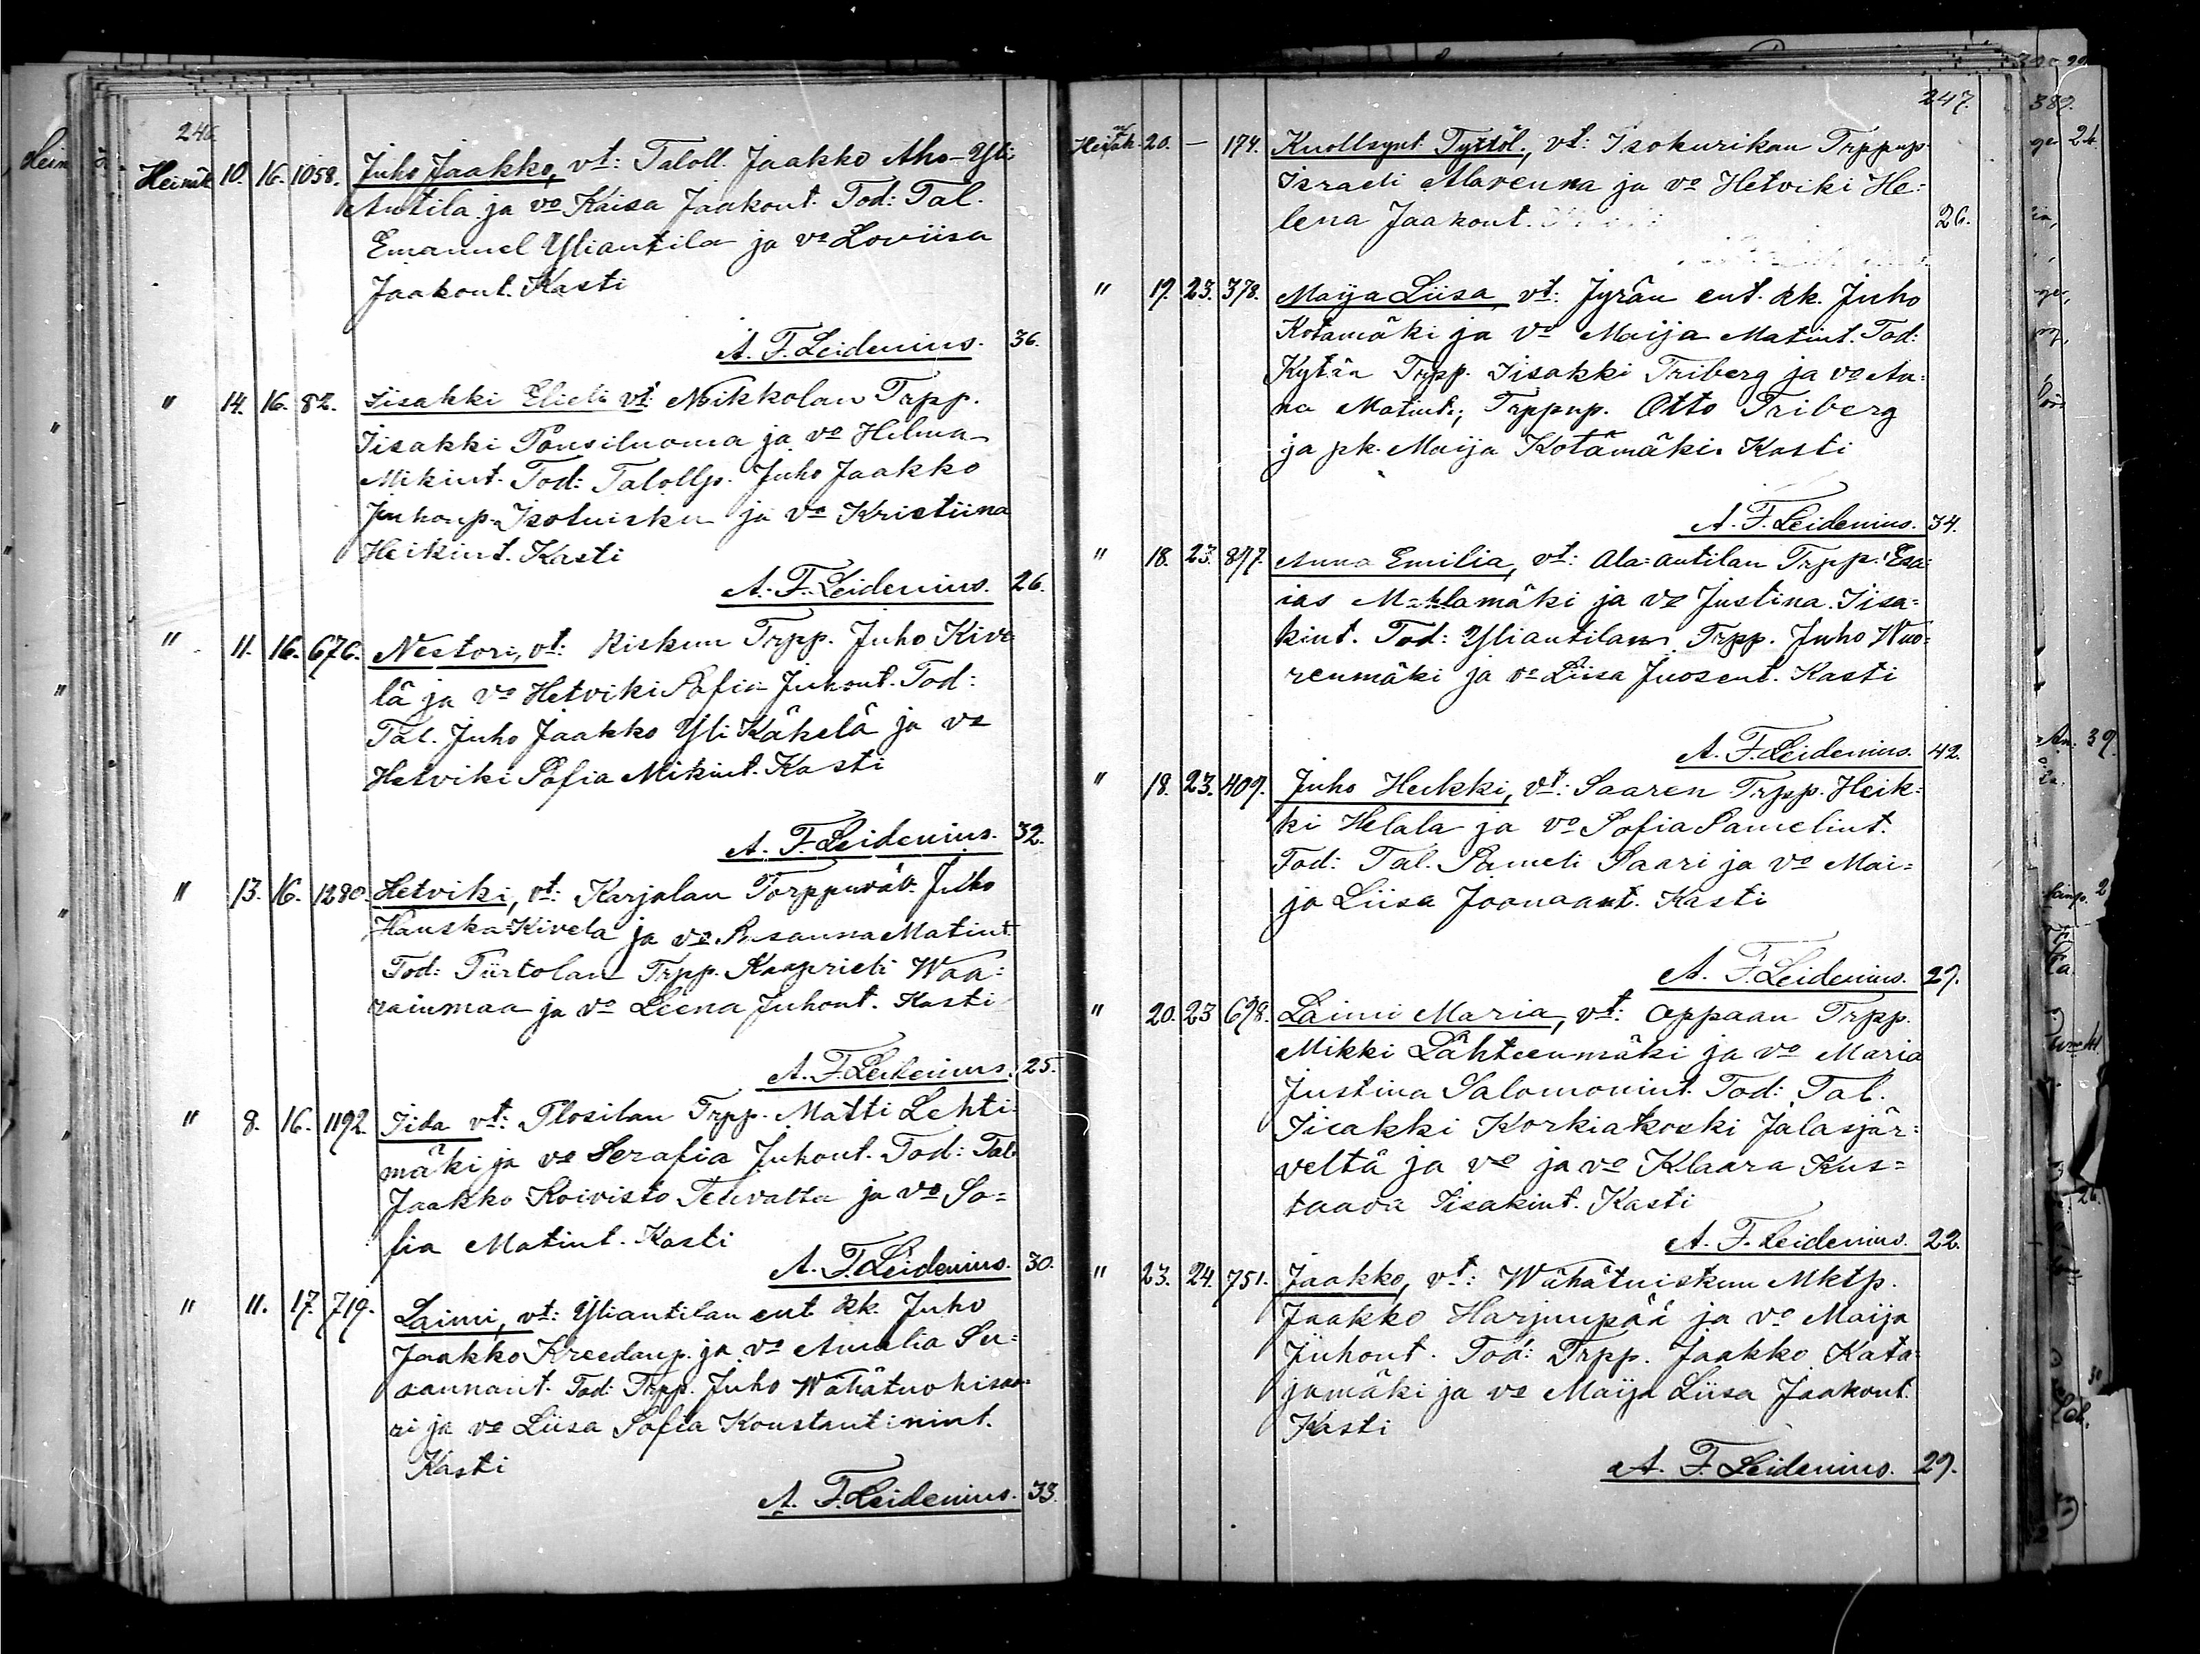 246.
Heinäk 10. 16. 1058. Juho Jaakko, vt: Taloll. Jaakko Aho-Yli
Antila ja vo Kaisa Jaakont. Tod: Tal.
Emanuel Yliantila ja vo Loviisa
Jaakont. Kasti
A. F. Leidenius. 36.
" 14. 16. 82. Iisakki Elieli vt: Mikkolan Trpp.
Iisakki Ponsiluoma ja vo Hilma
Mikint. Tod: Talollp. Juho Jaakko
Juhonp. Isotuisku ja vo Kristiina
Heikint. Kasti
A. F. Leidenius. 26.
" 11. 16. 676. Nestori, vt: Riskun Trpp. Juho Kive
lä ja vo Hetviki Sofia Juhont. Tod:
Tal. Juho Jaakko Yli Kähelä ja vo
Hetviki Sofia Mikint. Kasti
A. F. Leidenius. 32.
" 13. 16. 1280. Hetviki, vt: Karjalan Torppuväv. Juho
Hauska-Kivela ja vo Susanna Matint.
Tod: Piirtolan Trpp. Kaaprieli Waa=
rainmaa ja vo Leena Juhont. Kasti
A. F. Leidenius. 25.
" 8. 16. 1192. Iida vt: Plosilan Trpp. Matti Lehti
mäki ja vo Serafia Juhont. Tod: Tal
Jaakko Koivisto Teuvalta ja vo So=
fia Matint. Kasti
A. F. Leidenius. 30.
" 11. 17. 719. Laimi, vt: Yliantilan ent. kk. Juho
Jaakko Kreedanp. ja vo Amalia Su=
sannant. Tod: Trpp. Juho Wähätuohisaa
ri ja vo Liisa Sofia Konstantinint.
Kasti
A. F. Leidenius. 33.
247.
Heinäk 20. — 174. Kuollsynt. Tyttöl., vt: Isokurikan Trppnp
Israeli Alarenna ja vo Hetviki He=
lena Jaakont. 26.
" 19. 23. 378. Maija Liisa, vt: Jyrän ent. kk. Juho
Kotamäki ja vo Maija Matint. Tod:
Kytän Trpp. Iisakki Triberg ja vo An=
na Matint.; Trppnp. Otto Triberg
ja pk. Maija Kotamäki. Kasti
A. F. Leidenius. 34.
" 18. 23. 877. Anna Emilia, vt: Ala=antilan Trpp. Esa=
ias ja vo Justina Iisa=
kint. Tod: Yliantilan Trpp. Juho Wuo=
renmäki ja vo Liisa Juosent. Kasti
A. F. Leidenius. 42.
" 18. 23. 409. Juho Heikki, vt: Saaren Trpp. Heik=
ki Helala ja vo Sofia Samelint.
Tod: Tal. Sameli Saari ja vo Mai=
ja Liisa Joonaant. Kasti
A. F. Leidenius. 29.
" 20. 23 698. Laimi Maria, vt: Oppaan Trpp.
Mikki Lähteenmäki ja vo Maria
Justina Salomonint. Tod: Tal.
Iisakki Korkiakoski Jalasjär=
veltä ja vo ja vo Klaara Kus=
taava Iisakint. Kasti
A. F. Leidenius. 22.
" 23. 24. 751. Jaakko, vt: Wähätuiskun Mktp.
Jaakko Harjunpää ja vo Maija
Juhont. Tod: Trpp. Jaakko Kata=
jamäki ja vo Maija Liisa Jaakont.
Kasti
A. F. Leidenius. 29.